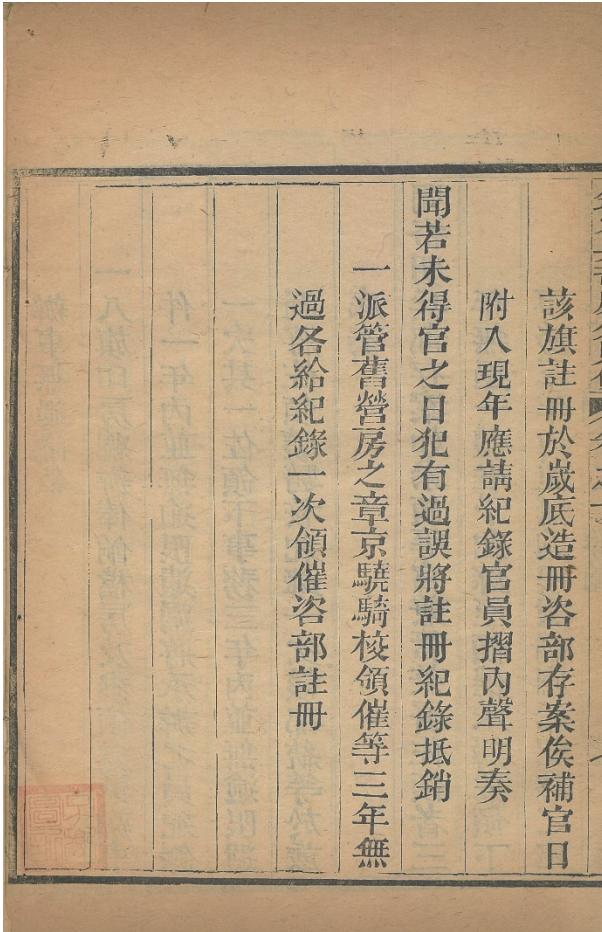 該旗註冊於嵗底造冊咨部存案俟補官日
附入現年應請紀錄官員摺内聲明奏
聞若未得官之日犯有過誤將註冊紀錄抵銷
一派管舊營房之章京驍騎校領催等三年無
過各給紀錄一次領催咨部註冊